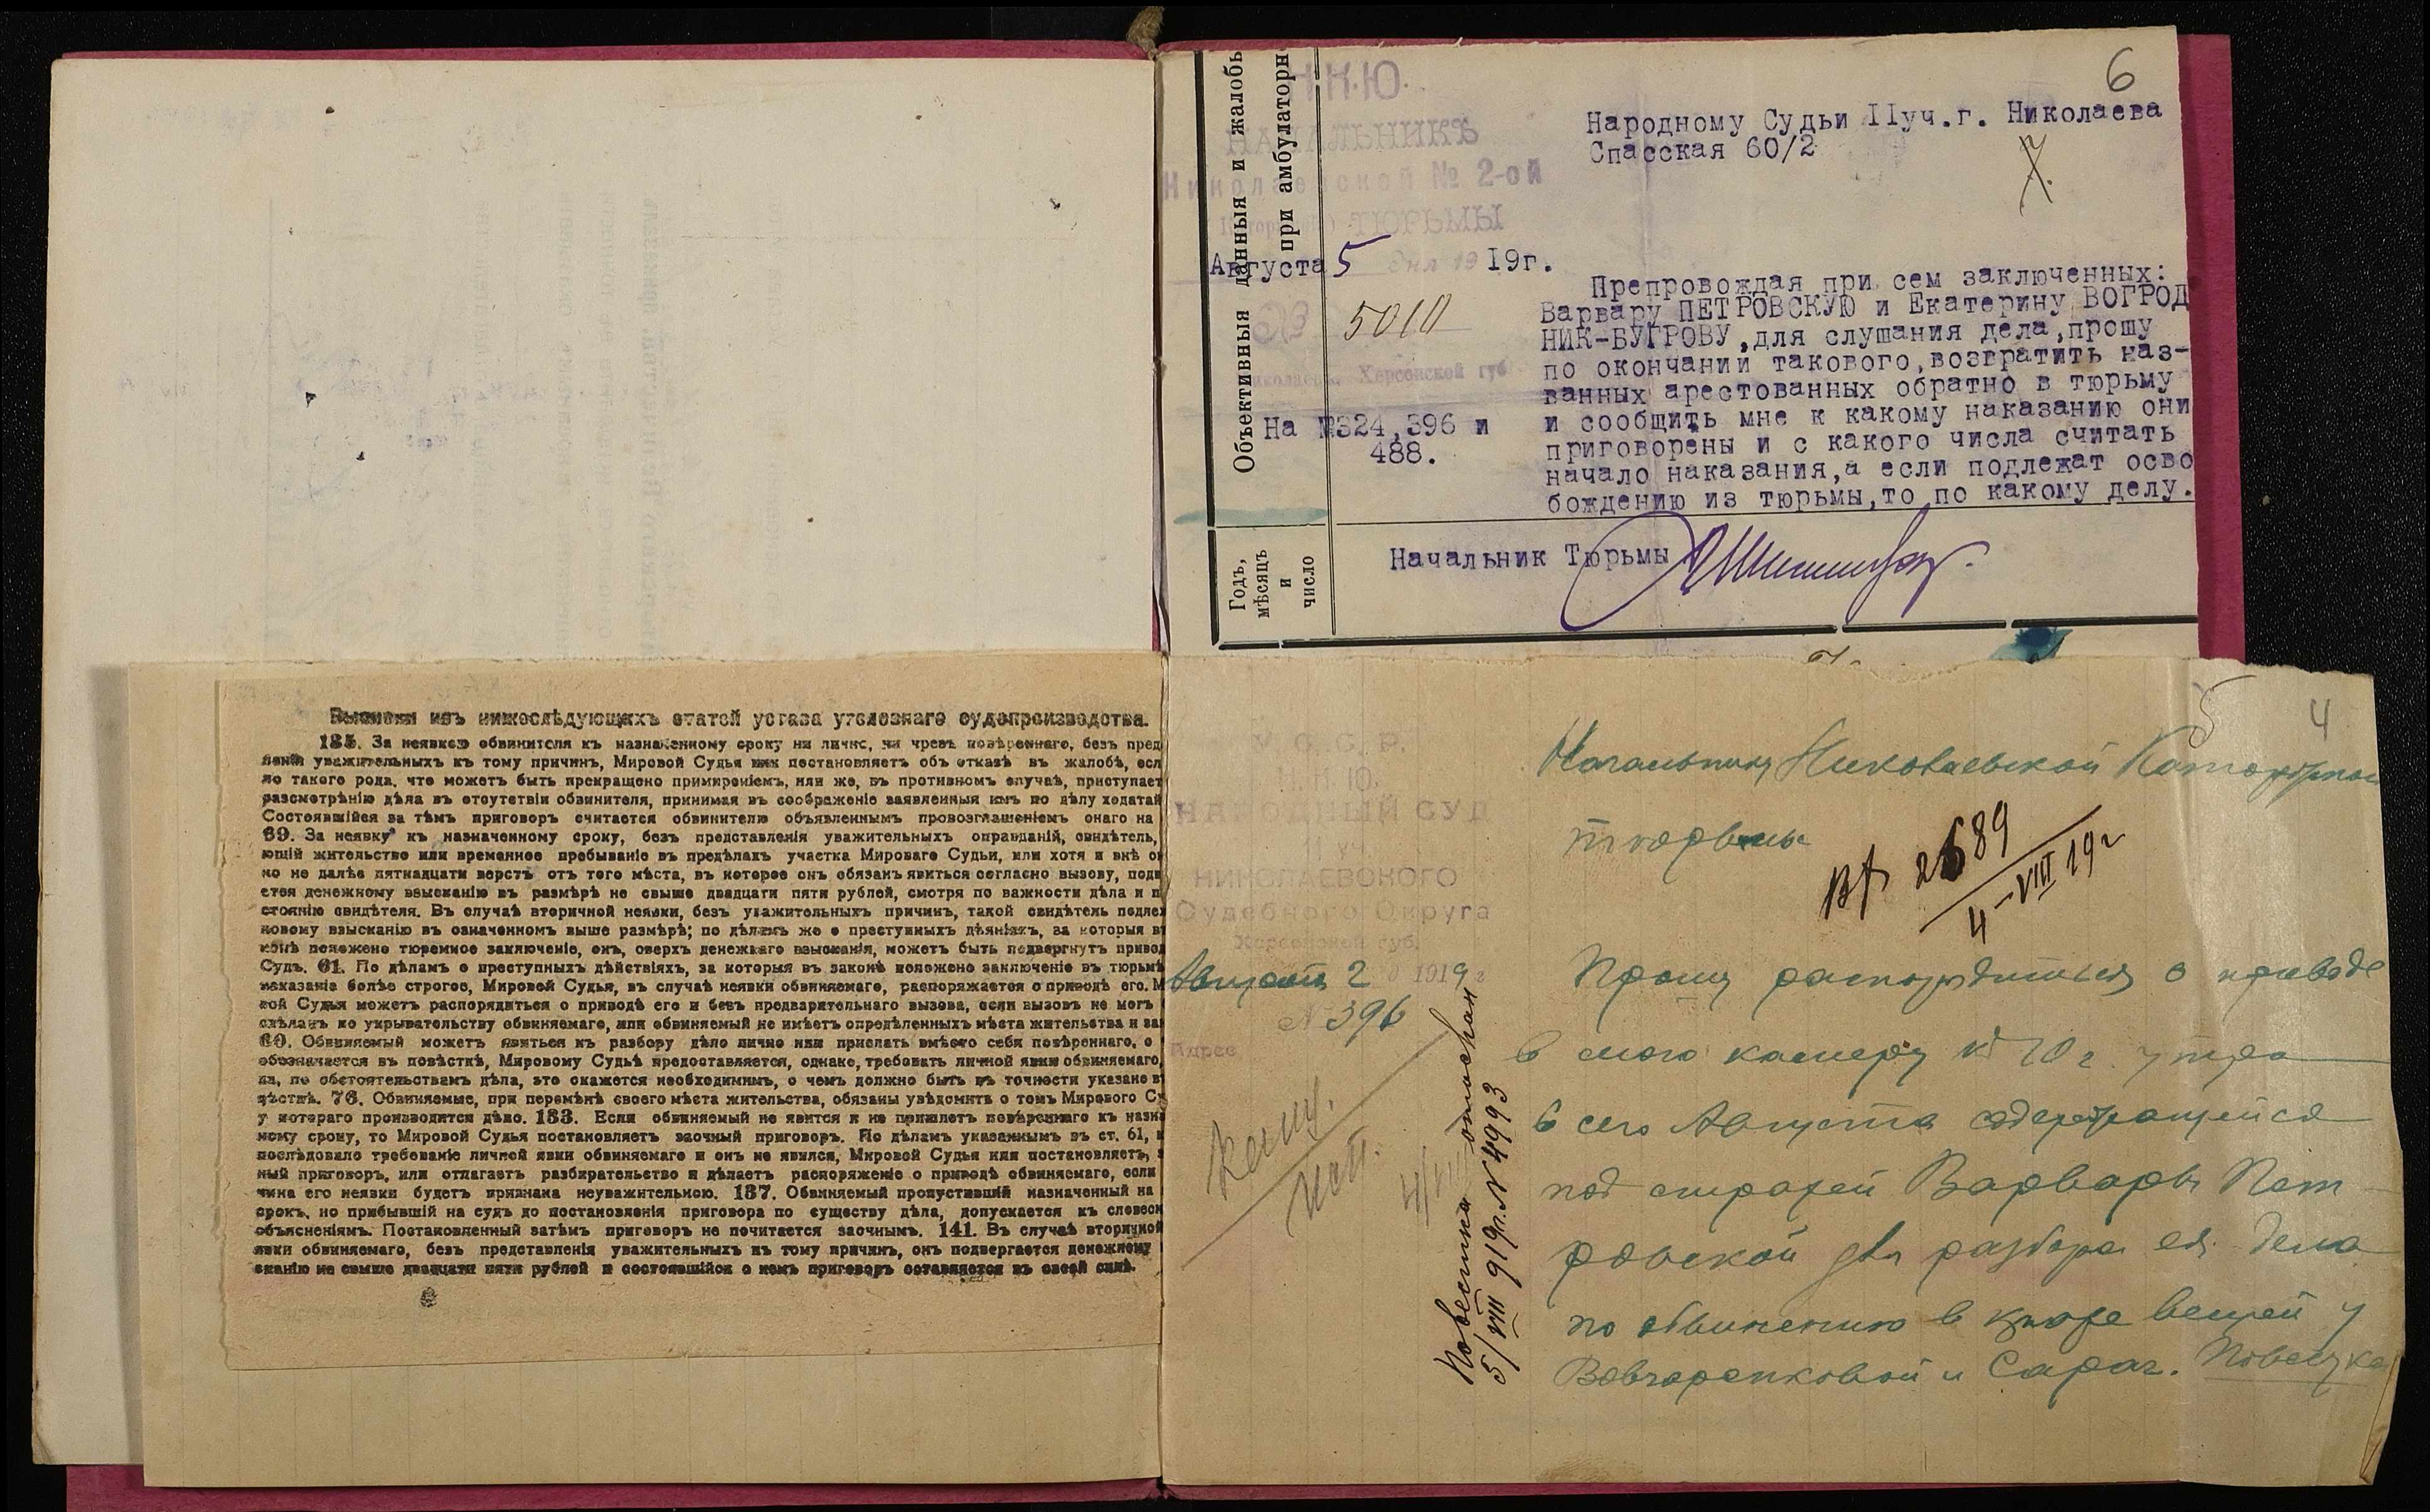 Выписки изъ нижеслѣдующихъ статей устава уголовнаго судопроизводства.
135. За неявкою обвинителя къ назначенному сроку ни лично, ни чрезъ повѣреннаго, безъ пред
ленія уважительныхъ къ тому причинъ, Мировой Судья или постановляетъ объ отказѣ въ жалобѣ, есл
ло такого рода, что можетъ быть прекращено примиреніемъ, или же, въ противномъ случаѣ, приступает
разсмотрѣнію дѣла въ отсутствіи обвинителя, принимая въ соображеніе заявленныя имъ по дѣлу ходатай
Состоявшійся за тѣмъ приговоръ считается обвинителю объявленнымъ провозглашеніемъ онаго на
69. За неявку къ назначенному сроку, безъ представленія уважительныхъ оправданій, свидѣтель,
ющій жительство или временное пребываніе въ предѣлахъ участка Мироваго Судьи, или хотя и внѣ о
но не далѣе пятнадцати верстъ отъ того мѣста, въ которое онъ обязанъ явиться согласно вызову, подв
ется денежному взысканію въ размѣрѣ не свыше двадцати пяти рублей, смотря по важности дѣла и п
стоянію свидѣтеля. Въ случаѣ вторичной неявки, безъ уважительныхъ причинъ, такой свидѣтель подле
новому взысканію въ означенномъ выше размѣрѣ; по дѣламъ же о преступныхъ дѣяніяхъ, за которыя в
конѣ положено тюремное заключеніе, онъ, сверхъ денежнаго взысканія, можетъ быть подвергнутъ привод
Судъ. 61. По дѣламъ о преступныхъ дѣйствіяхъ, за которыя въ законѣ положено заключеніе въ тюрьмѣ
наказаніе болѣе строгое, Мировой Судья, въ случаѣ неявки обвиняемаго, распоряжается о приводѣ его. М
вой Судья можетъ распорядиться о приводѣ его и безъ предварительнаго вызова, если вызовъ не могъ
сдѣланъ по укрывательству обвиняемаго, или обвиняемый не имѣетъ опредѣленныхъ мѣста жительства и за
60. Обвиняемый можетъ явиться къ разбору дѣло лично или прислать вмѣсто себя повѣреннаго, о
обозначается въ повѣсткѣ, Мировому Судьѣ предоставляется, однако, требовать личной явки обвиняемаго,
ла, по обстоятельствамъ дѣла, это окажется необходимымъ, о чемъ должно быть въ точности указано в
вѣсткѣ. 76. Обвиняемые, при перемѣнѣ своего мѣста жительства, обязаны увѣдомить о томъ Мирового С
у котораго производится дѣло. 133. Если обвиняемый не явится и не пришлетъ повѣреннаго къ назна
ному сроку, то Мировой Судья постановляетъ заочный приговоръ. По дѣламъ указаннымъ въ ст. 61,
послѣдовало требованіе личной явки обвиняемаго и онъ не явился, Мировой Судья или постановляетъ,
ный приговоръ, или отлагаетъ разбирательство и дѣлаетъ распоряженіе о приводѣ обвиняемаго, если
чина его неявки будетъ признана неуважительною. 137. Обвиняемый пропустившій назначенный на
срокъ, но прибывшій на судъ до постановленія приговора по существу дѣла, допускается къ словесн
объясненіямъ. Постановленный затѣмъ приговоръ не почитается заочнымъ. 141. Въ случаѣ вторичной
явки обвиняемаго, безъ представленія уважительныхъ къ тому причинъ, онъ подвергается денежному
сканію не свыше двадцати пяти рублей и состоявшійся о немъ приговоръ оставляется въ своей силѣ.
6
Н.К.Ю.
НАЧАЛЬНИКЪ
Николаевской № 2-ой
ТЮРЬМЫ
Августа 5 дня 1919г.
5010
Херсонской губ
На №324,396 и
488.
Объективныя данныя и жалобы
при амбулаторн
Годъ,
мѣсяцъ
и
число
Народному Судьи IIуч.г. Николаева
Спасская 60/2
Препровождая при сем заключенных:
Варвару ПЕТРОВСКУЮ и Екатерину ВОГРОД
НИК-БУГРОВУ,для слушания дела,прошу
по окончании такового,возвратить наз-
ванных арестованных обратно в тюрьму
и сообщить мне к какому наказанию они
приговорены и с какого числа считать
начало наказания,а если подлежат осво
бождению из тюрьмы,то по какому делу.
Начальник Тюрьмы
5 4
У. С. С. Р.
Н. К. Ю.
НАРОДНЫЙ СУД
II уч.
НИКОЛАЕВСКОГО
Судебного Округа
Херсонской губ.
Августа 2 1919 г
№ 396
Адрес
Начальнику Николаевской Каторжной
тюрьмы
Вх 2689
4-VIII 19 г
Прошу распорядиться о приводе
в мою камеру к 10 ч. утра
6 сего Августа содержащейся
под стражей Варвары Пет
ровской для разбора ея дела
по обвинению в краже вещей у
Вовчаренковой и Сарач.
Повестка отослан
5/VIII 919г. № 4993